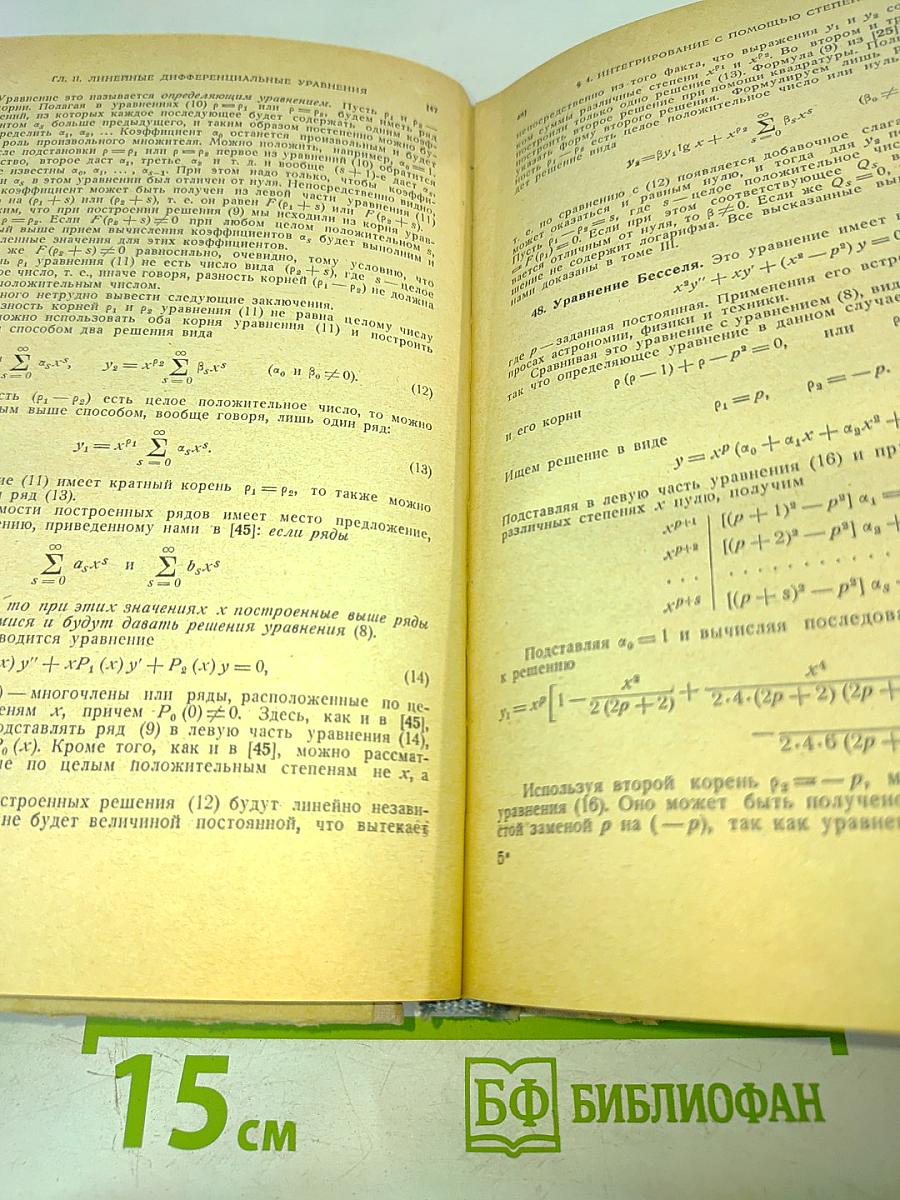 ГЛ. II. ЛИНЕЙНЫЕ ДИФФЕРЕНЦИАЛЬНЫЕ УРАВНЕНИЯ
[47
Уравнение это называется определяющим уравнением. Пусть ρ₁ и ρ₂—
корни. Полагая в уравнениях (10) ρ=ρ₁ или ρ=ρ₂, будем иметь ряд
из которых каждое последующее будет содержать одним коэф-
α₈ больше предыдущего, и таким образом постепенно можно бу-
α₁, α₂, ... Коэффициент α₀ останется произвольным и будет
роль произвольного множителя. Можно положить, например, α₀=1.
подстановки ρ=ρ₁ или ρ=ρ₂ первое из уравнений (10) обратится
второе даст α₁, третье α₂ и т. д. и вообще (s+1)-е даст αₛ,
известны α₀, α₁, ..., αₛ₋₁. При этом надо только, чтобы коэффи-
αₛ в этом уравнении был отличен от нуля. Непосредственно видно,
коэффициент может быть получен из левой части уравнения (11)
на (ρ₁+s) или (ρ₂+s), т. е. он равен F(ρ₁+s) или F(ρ₂+s).
что при построении решения (9) мы исходили из корня урав-
ρ=ρ₂. Если F(ρ₂+s)≠0 при любом целом положительном s,
выше прием вычисления коэффициентов αₛ будет выполним и
значения для этих коэффициентов.
же F(ρ₂+s)≠0 равносильно, очевидно, тому условию, что
ρ₁ уравнения (11) не есть число вида (ρ₂+s), где s—целое
число, т. е., иначе говоря, разность корней (ρ₁—ρ₂) не должна
положительным числом.
нетрудно вывести следующие заключения.
корней ρ₁ и ρ₂ уравнения (11) не равна целому числу
использовать оба корня уравнения (11) и построить
способом два решения вида
∞ ∑ s=0 αₛxˢ, y₂=x^ρ₂ ∞ ∑ s=0 βₛxˢ (α₀ и β₀≠0). (12)
(ρ₁—ρ₂) есть целое положительное число, то можно
выше способом, вообще говоря, лишь один ряд:
y₁=x^ρ₁ ∞ ∑ s=0 αₛxˢ. (13)
(11) имеет кратный корень ρ₁=ρ₂, то также можно
ряд (13).
построенных рядов имеет место предложение,
приведенному нами в [45]: если ряды
∞ ∑ s=0 aₛxˢ и ∞ ∑ s=0 bₛxˢ
то при этих значениях x построенные выше ряды
и будут давать решения уравнения (8).
уравнение
y″+xP₁(x)y′+P₂(x)y=0, (14)
—многочлены или ряды, расположенные по це-
x, причем P₀(0)≠0. Здесь, как и в [45],
ряд (9) в левую часть уравнения (14),
P₀(x). Кроме того, как и в [45], можно рассмат-
по целым положительным степеням не x, а
решения (12) будут линейно незави-
не будет величиной постоянной, что вытекает
48]
§ 4. ИНТЕГРИРОВАНИЕ С ПОМОЩЬЮ
непосредственно из того факта, что выражения y₁ и y₂
суммы различные степени x^ρ₁ и x^ρ₂. Во втором и
построили только одно решение (13). Формула (9) из [25]
второе решение при помощи квадратуры.
форму второго решения. Формулируем лишь
ρ₁—ρ₂ есть целое положительное число или
решение вида
y₂=βy₁ lg x+x^ρ₂ ∞ ∑ s=0 βₛxˢ (β₀≠
т. е. по сравнению с (12) появляется добавочное
может оказаться и равным нулю, и тогда для y₂
Пусть ρ₁—ρ₂=s, где s—целое положительное
=F(ρ₁)=0. Если при этом соответствующее Qₛ
отличным от нуля, то β≠0. Если же Qₛ=0,
не содержит логарифма. Все высказанные
нами доказаны в томе III.
48. Уравнение Бесселя. Это уравнение имеет
x²y″+xy′+(x²—p²)y=0
где p—заданная постоянная. Применения его
просах астрономии, физики и техники.
Сравнивая это уравнение с уравнением (8),
так что определяющее уравнение в данном случае
ρ(ρ—1)+ρ—p²=0, или
и его корни
ρ₁=p, ρ₂=—p.
Ищем решение в виде
y=x^p(α₀+α₁x+α₂x²+
Подставляя в левую часть уравнения (16) и
различных степенях x нулю, получим
x^p+1 | [(p+1)²—p²] α₁=
x^p+2 | [(p+2)²—p²] α₂+
. . . | . . . . . . . . . .
x^p+s | [(p+s)²—p²] αₛ
Подставляя α₀=1 и вычисляя
к решению
y₁=x^p [1— x² / 2(2p+2) + x⁴ / 2·4·(2p+2)(2p+
— / 2·4·6(2p+
Используя второй корень ρ₂=—p,
уравнения (16). Оно может быть
стой заменой p на (—p), так как
5*
15 см
БФ БИБЛИОФАН